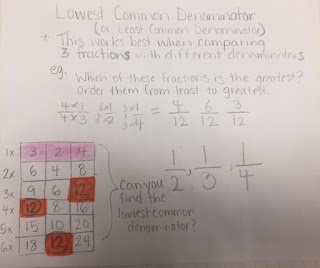 Lowest Common Denominator
(or Least Common Denominator)
* This works best when comparing
3 fractions with different denominators
eg. Which of these fractions is the greatest?
Order them from least to greatest.
4x1 6x1 3x1 = 4 6 3
4x3 6x2 3x4 12 12 12
1x 3 2 4
2x 6 4 8
3x 9 6 12
4x 12 8 16
5x 15 10 20
6x 18 12 24
Can you
find the
lowest common
denominator?
1/2, 1/3, 1/4